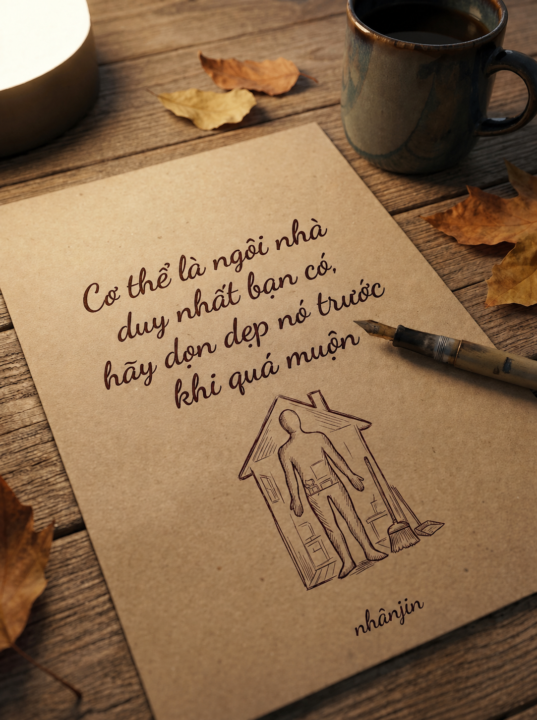 Cơ thể là ngôi nhà
duy nhất bạn có,
hãy dọn dẹp nó trước
khi quá muộn
nhânjin